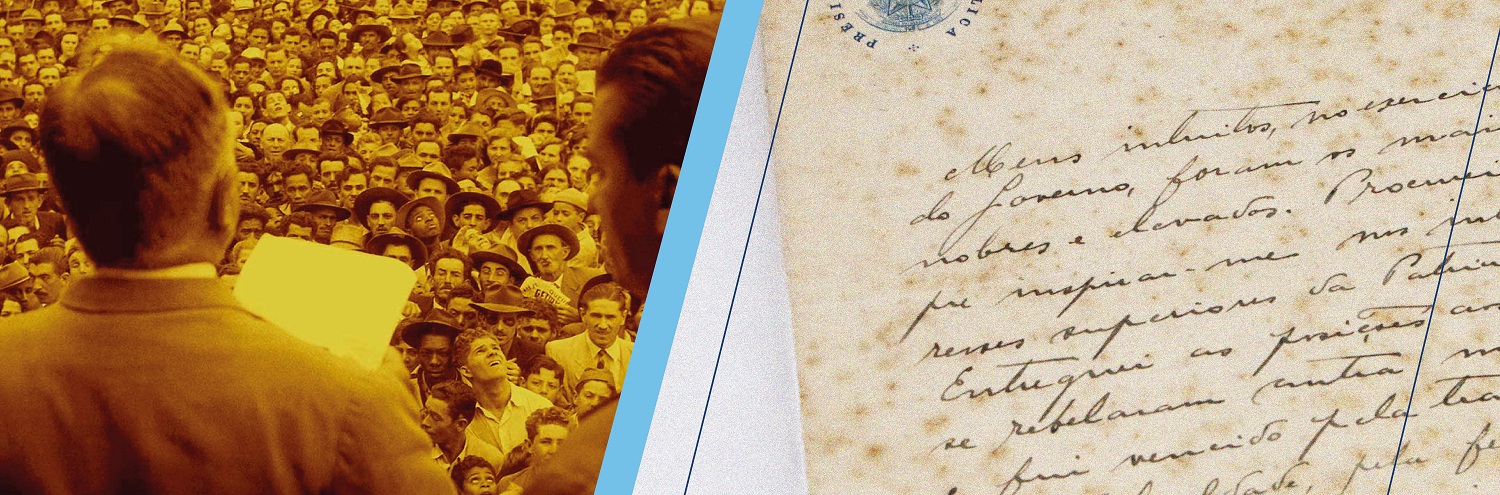 PRESI
LICA
GETU
Meus intuitos, no exercici
do Governo, foram os mais
nobres e elevados. Procurei
pre inspirar-me nos int
resses superiores da Patria
Entreguei as posições aos
se rebelaram contra m
fui vencido pela tra
pela fe